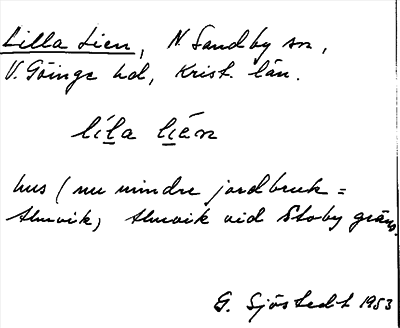 Lilla Lien, N. Sandby sn,
V. Göinge hd, Krist. län.
líla lién
hus (nu mindre jordbruk =
Almvik) Almvik vid Stoby gräns.
G. Sjöstedt 1953